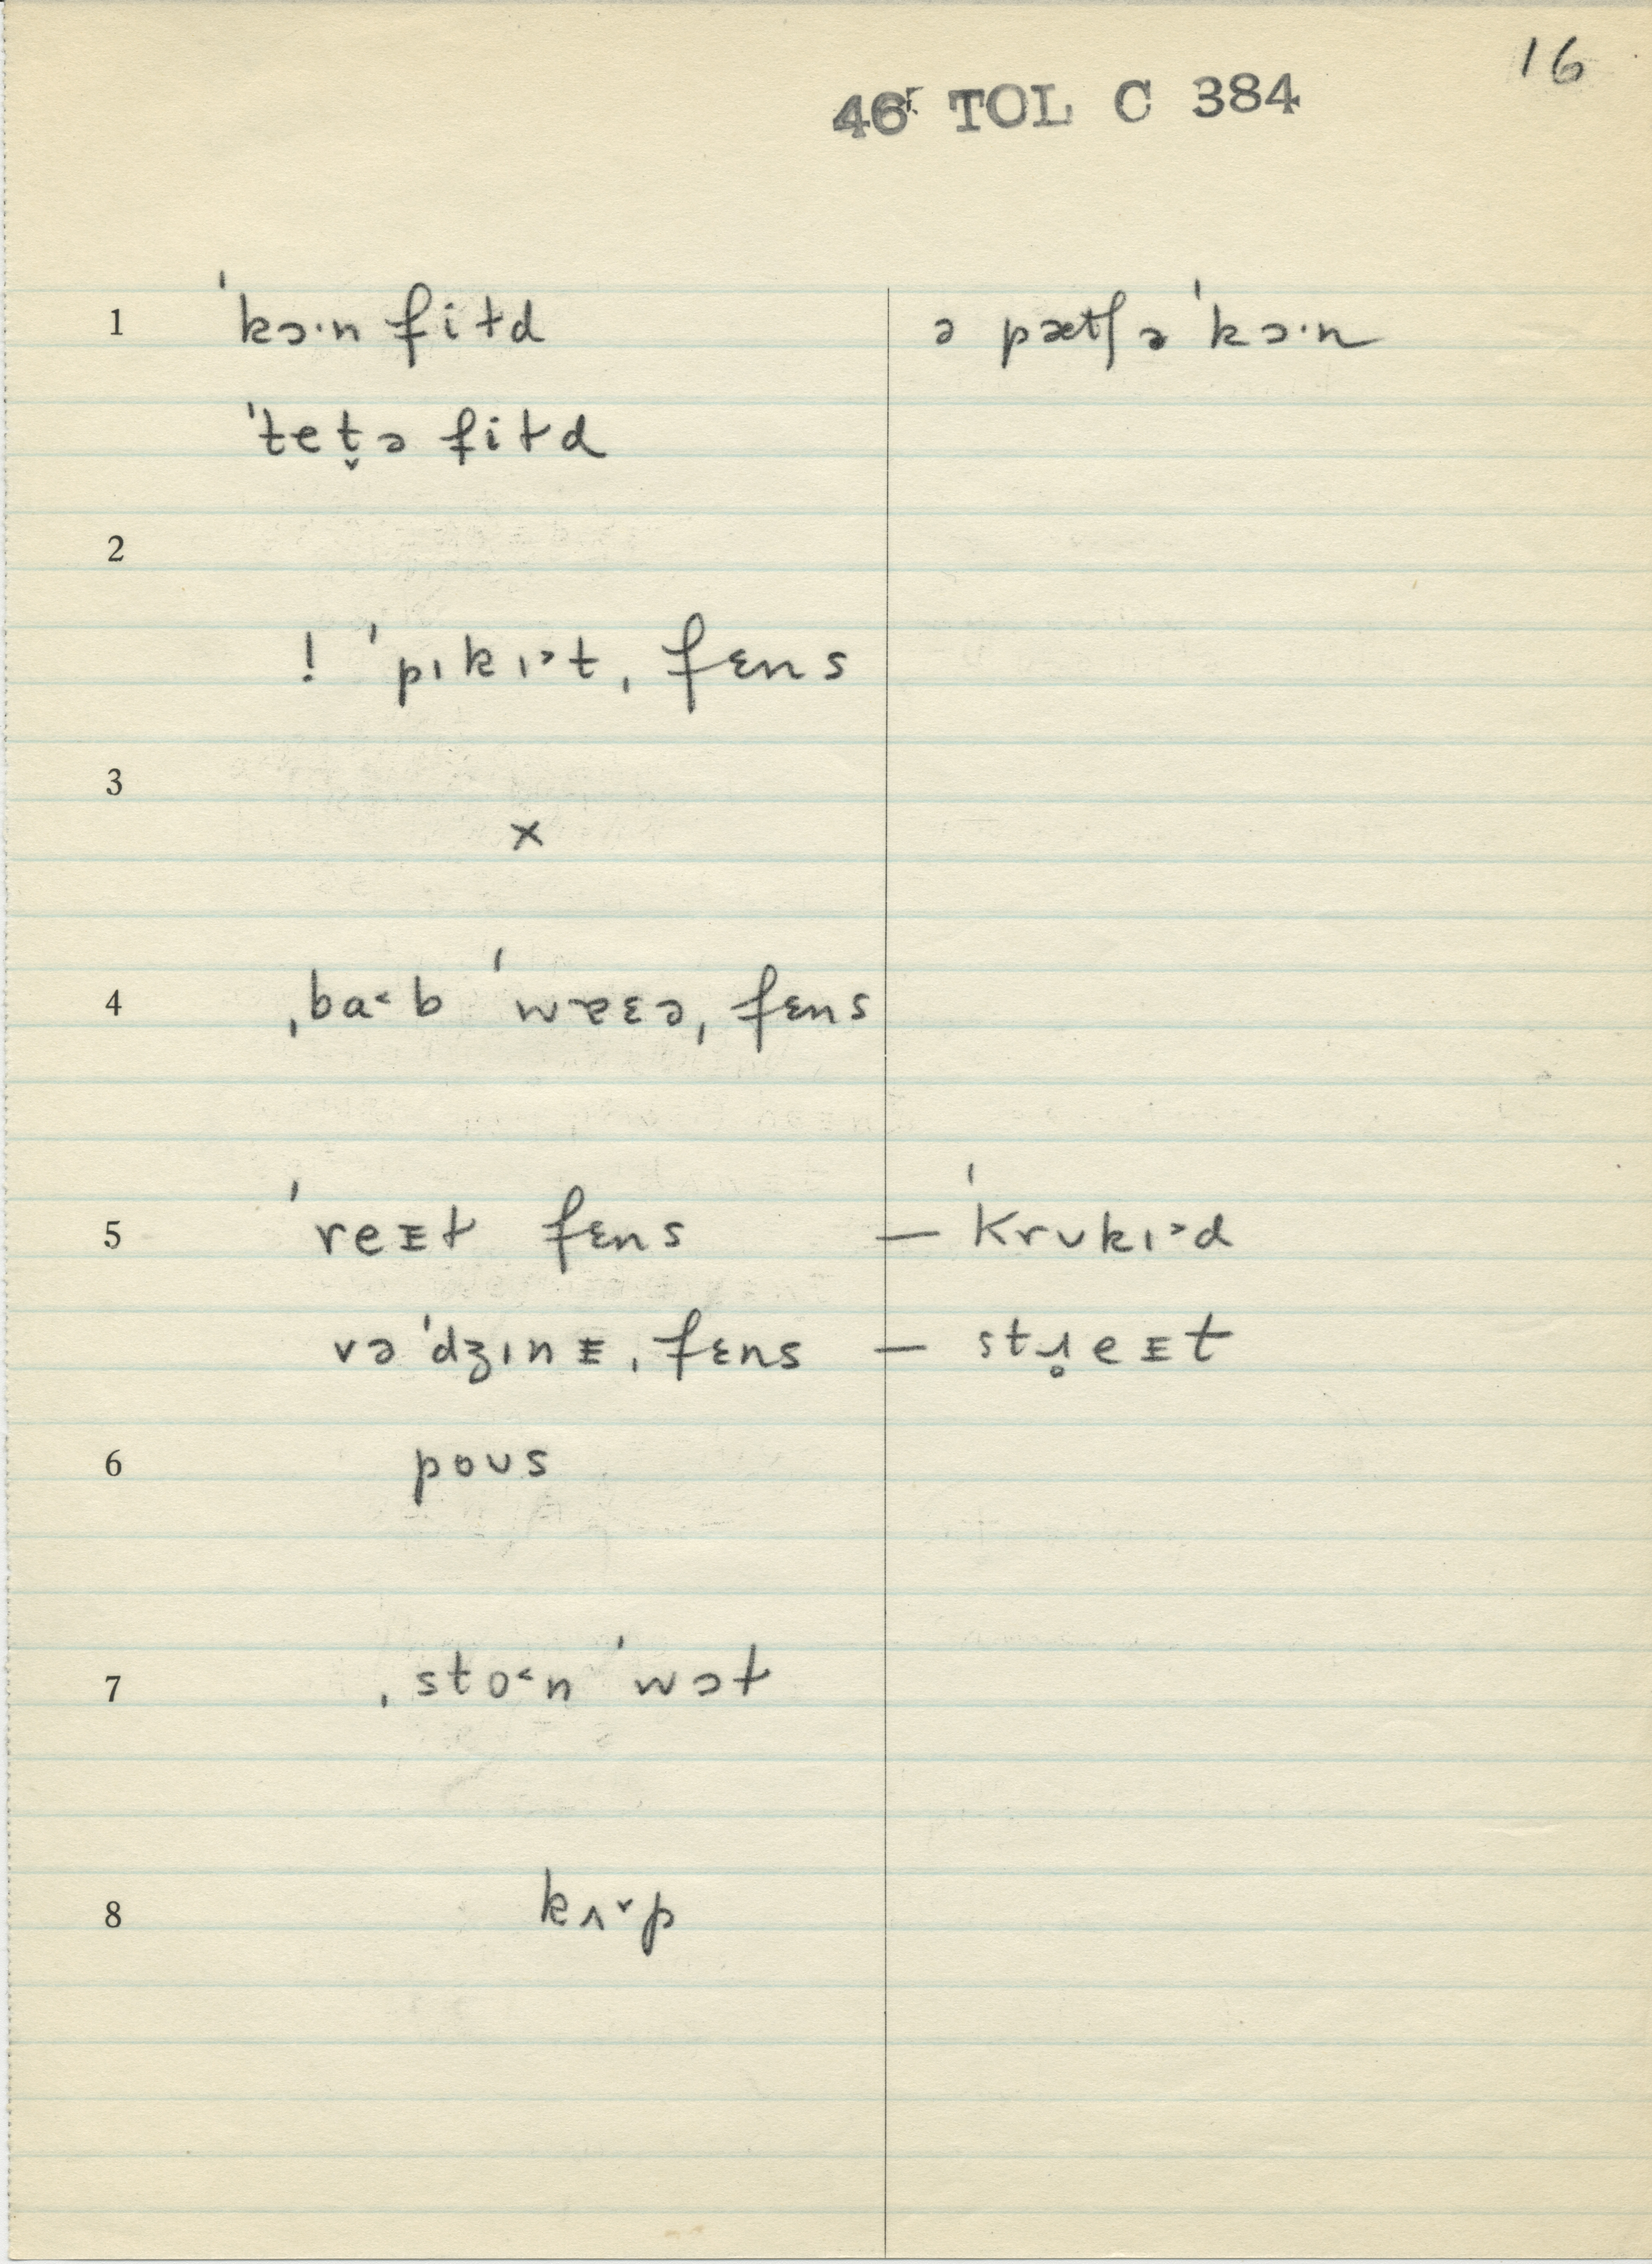 16
46ʳ TOL C 384
1 ˈkɔ·n fiɫd ə pætʃ ə ˈkɔ·n
ˈtet̬ə fiɫd
2
! ˈpɪkɪ˃t ˌfɛns
3
×
4 ˌba˂b ˈwɐɛə ˌfɛns
5 ˈreᵻɫ fɛns — ˈkrʊkɪ˃d
vəˈdʒɪnᵻ ˌfɛns — stɹ̥eᵻt
6 poʊs
7 ˌsto˂n ˈwɔɫ
8 kʌ˅p